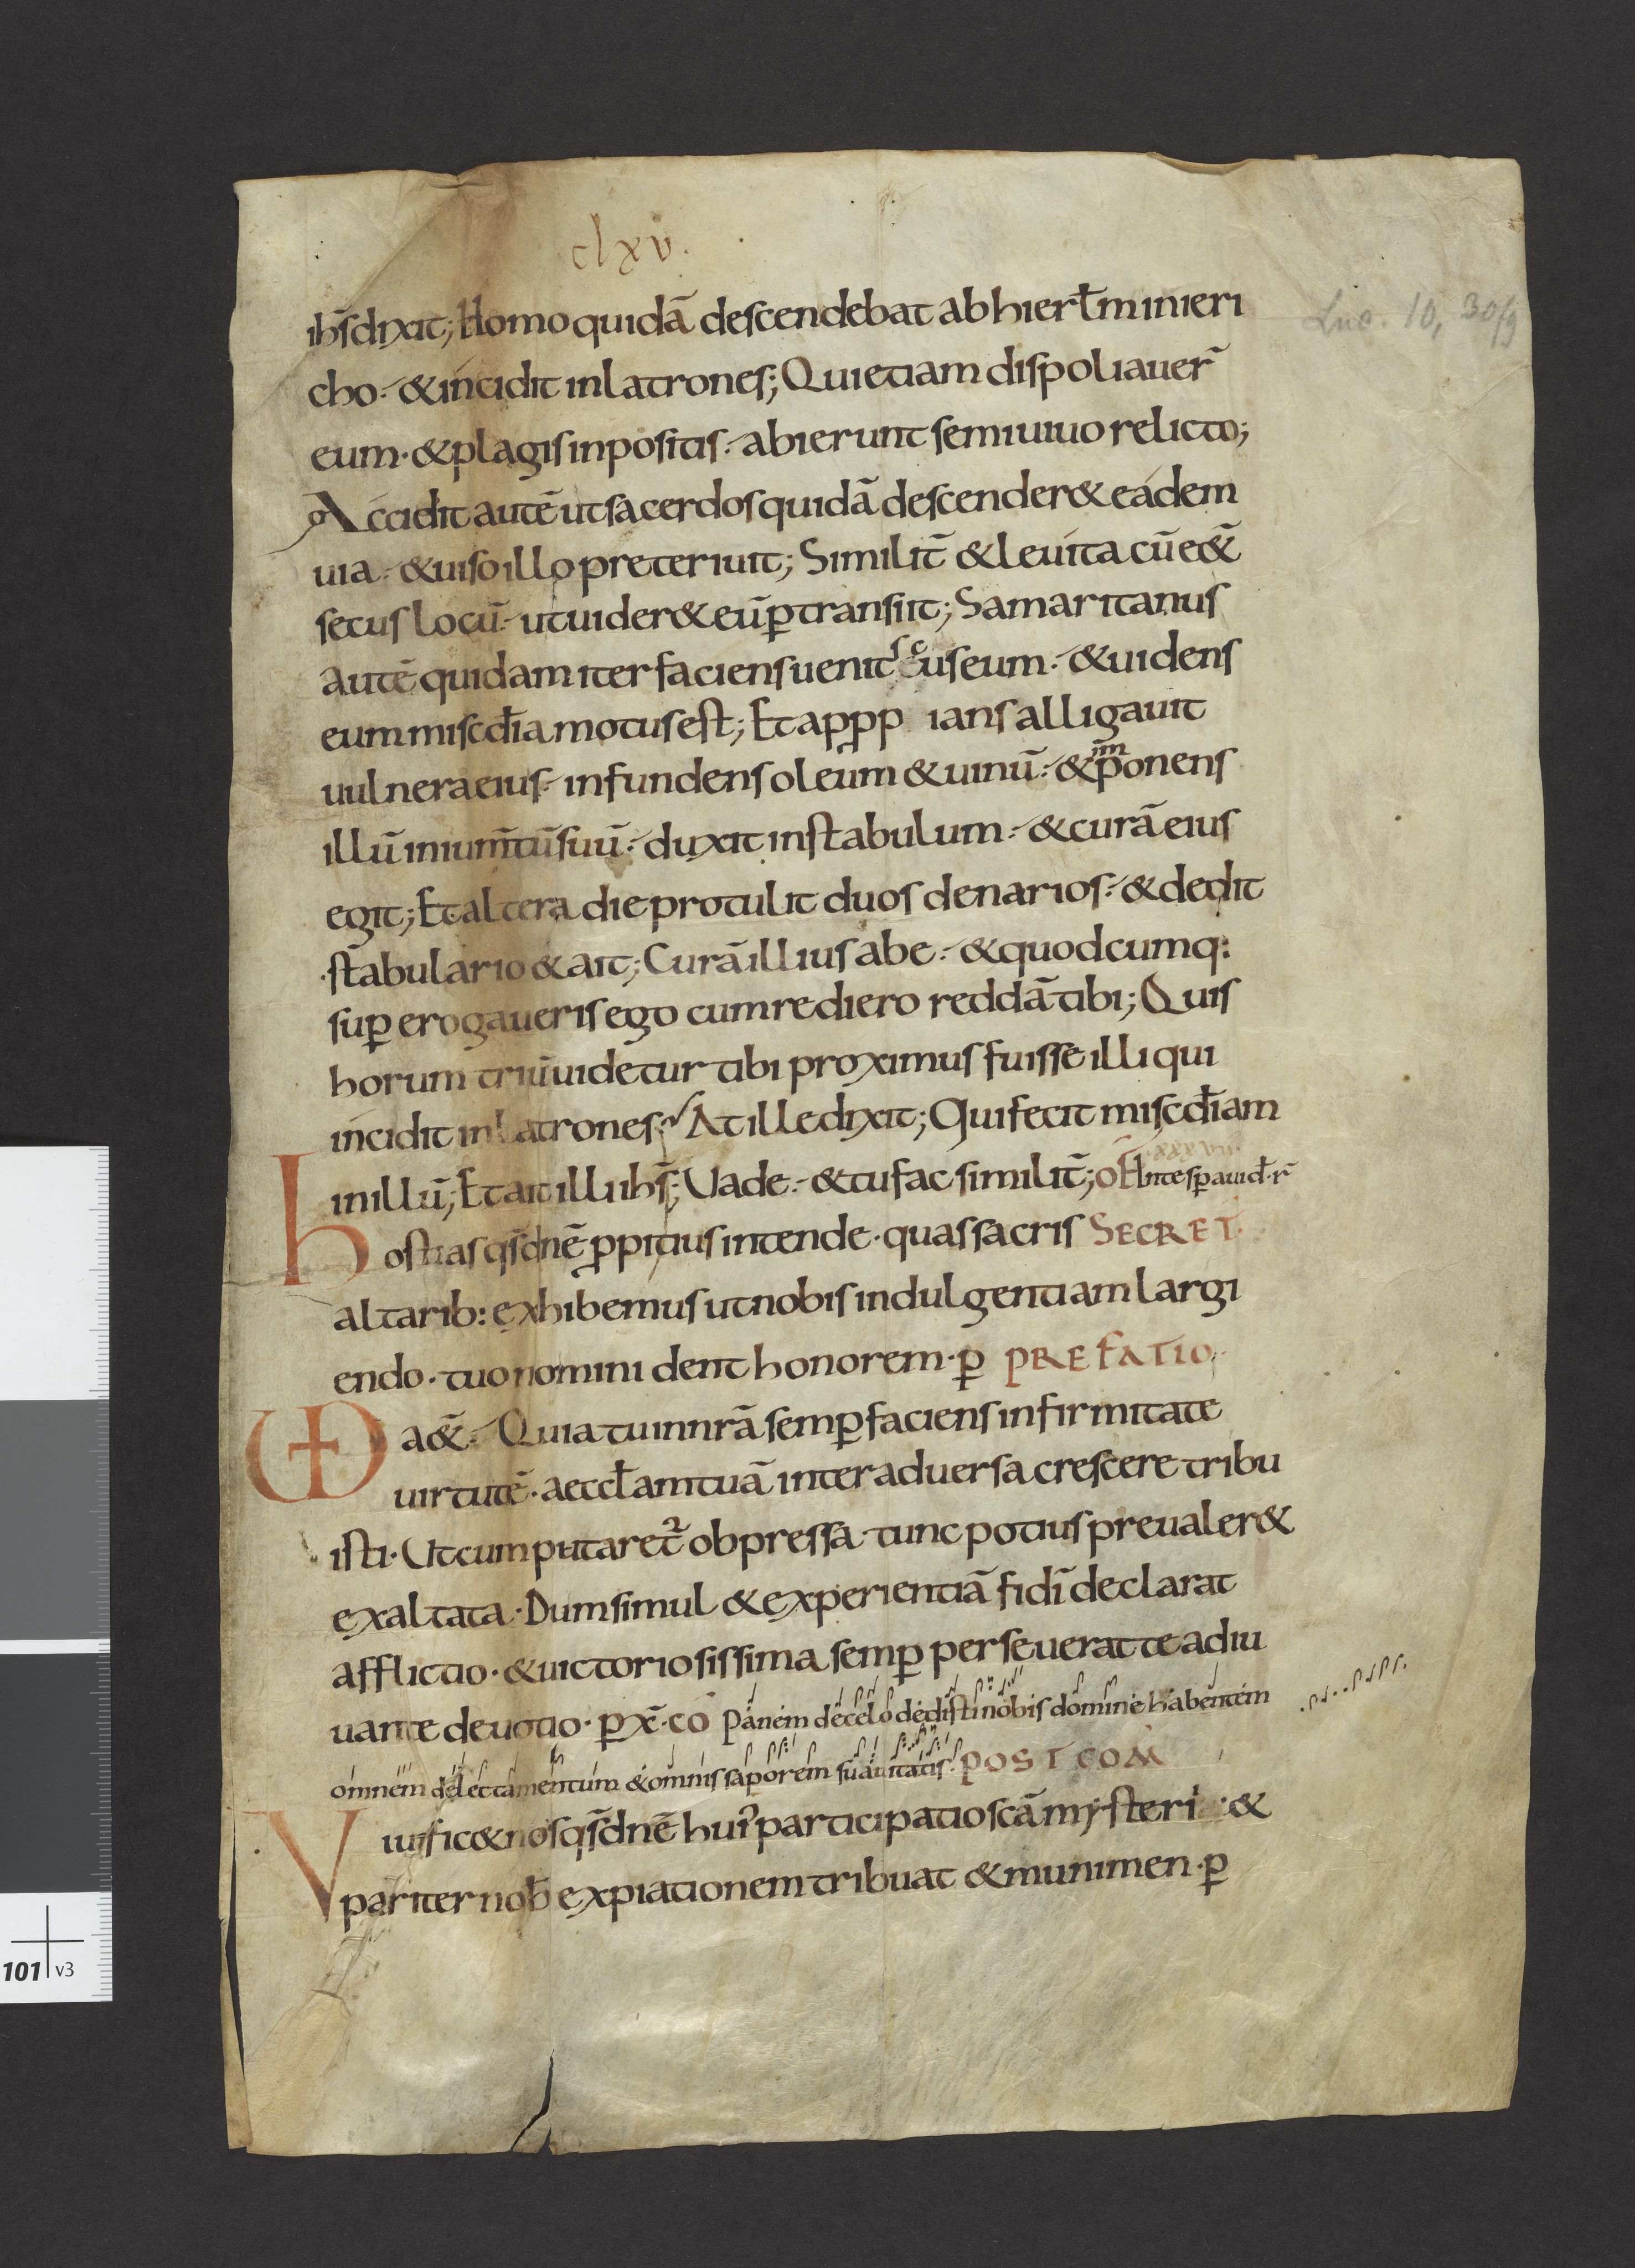 clxv.
Luc. 10, 30/9
ih̅s dixit; Homo quidā descendebat ab hierłm in ieri
cho. & incidit in latrones; Qui etiam dispoliauer̄
eum. & plagis inpositis. abierunt semiuiuo relicto;
Accidit autē ut sacerdos quidā descender& eadem
uia. & uiso illo preteriuit; Similit̄ & leuita cū e&̄
secus locū. ut uider& eū ꝑtransiit; Samaritanus
autē quidam iter faciens uenit secus eum. & uidens
eum misc̄dia motus est; Et apꝓp ians alligauit
uulnera eius. infundens oleum & uinū. & im̄ponens
illū in ium̄tū suū. duxit in stabulum. & curā eius
egit; Et altera die protulit duos denarios. & dedit
stabulario & ait; Curā illius abe. & quodcumq:
suꝑ erogaueris ego cum rediero reddā tibi; Quis
horum triū uidetur tibi proximus fuisse illi qui
incidit in latrones? At ille dixit; Qui fecit misc̄diam
xxxvii.
in illū; Et ait illi ih̅s; Vade. & tu fac similit̄; OF̄ In te sꝑaui d. r̄
Hostias qs̄ dnē ꝓpitius intende. quas sacris SECRET.
altarib: exhibemus ut nobis indulgentiam largi
endo. tuo nomini dent honorem. ꝑ PREFATIO
VD a&̄. Quia tu in nrā semꝑ faciens infirmitate
uirtutē. aeccłam tuā inter aduersa crescere tribu
isti. Ut cum putaret᷒ obpressa. tunc potius preualer&
exaltata. Dum simul & experientiā fidī declarat
afflictio. & uictoriosissima semꝑ perseuerat te adiu
uante deuotio. ꝑ xp̄. CO Panem de celo dedisti nobis domine habentem
omnem delectamentum & omnis saporem suauitatis. POST COM̄
Viuific& nos qs̄ dnē hui᷒ participatio scā mysterii. &
pariter nob̄ expiationem tribuat & munimen. ꝑ
101 v3